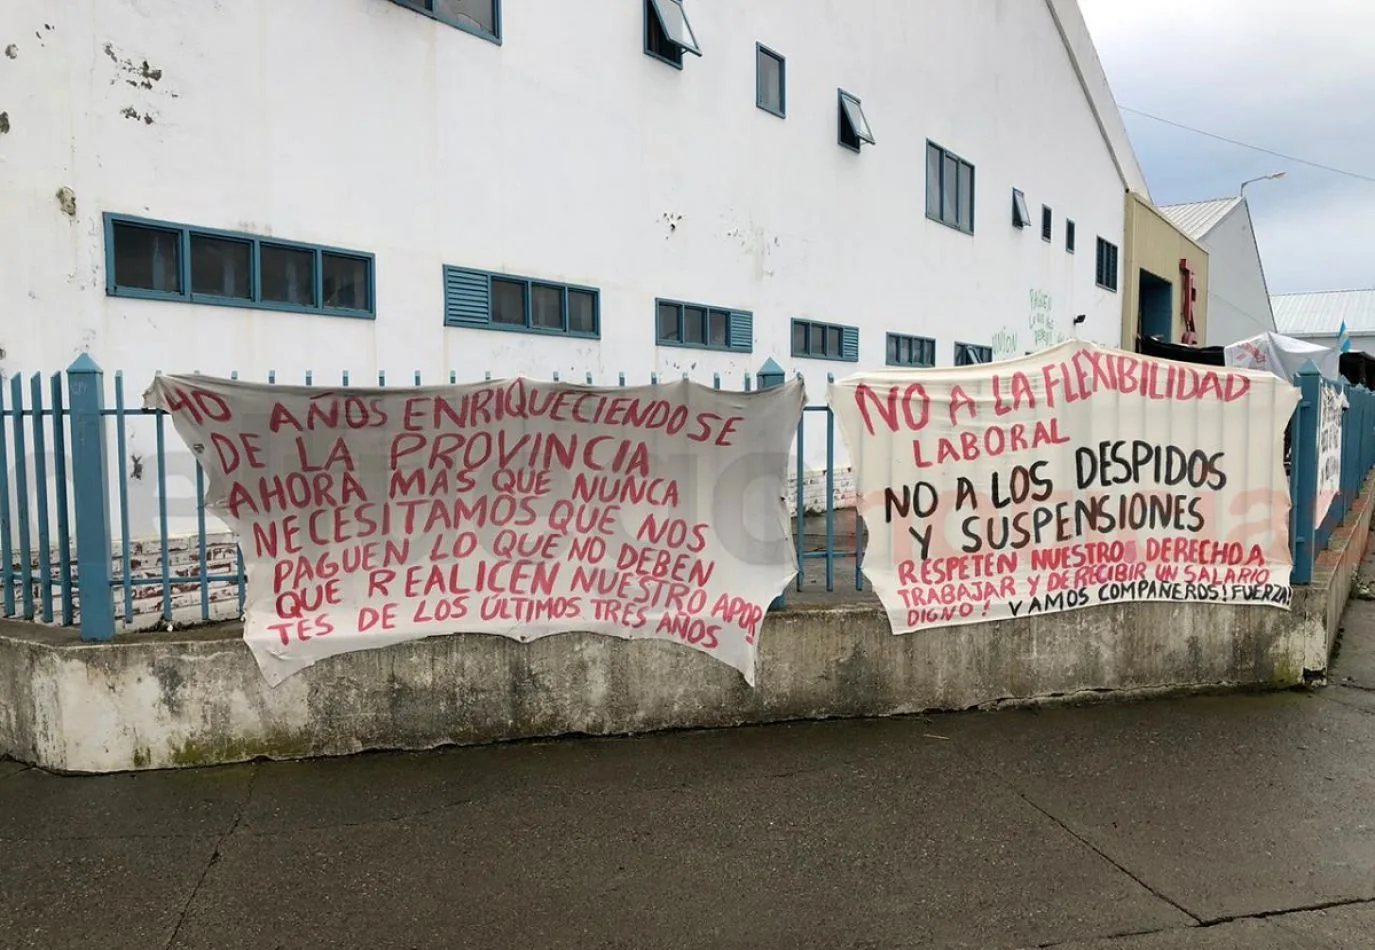 40 AÑOS ENRIQUECIENDOSE
DE LA PROVINCIA
AHORA MÁS QUE NUNCA
NECESITAMOS QUE NOS
PAGUEN LO QUE NO DEBEN
QUE REALICEN NUESTRO APOR
TES DE LOS ÚLTIMOS TRES AÑOS
NO A LA FLEXIBILIDAD
LABORAL
NO A LOS DESPIDOS
Y SUSPENSIONES
RESPETEN NUESTROS DERECHO A
TRABAJAR Y DE RECIBIR UN SALARIO
DIGNO! VAMOS COMPAÑEROS! FUERZA!
UNIÓN